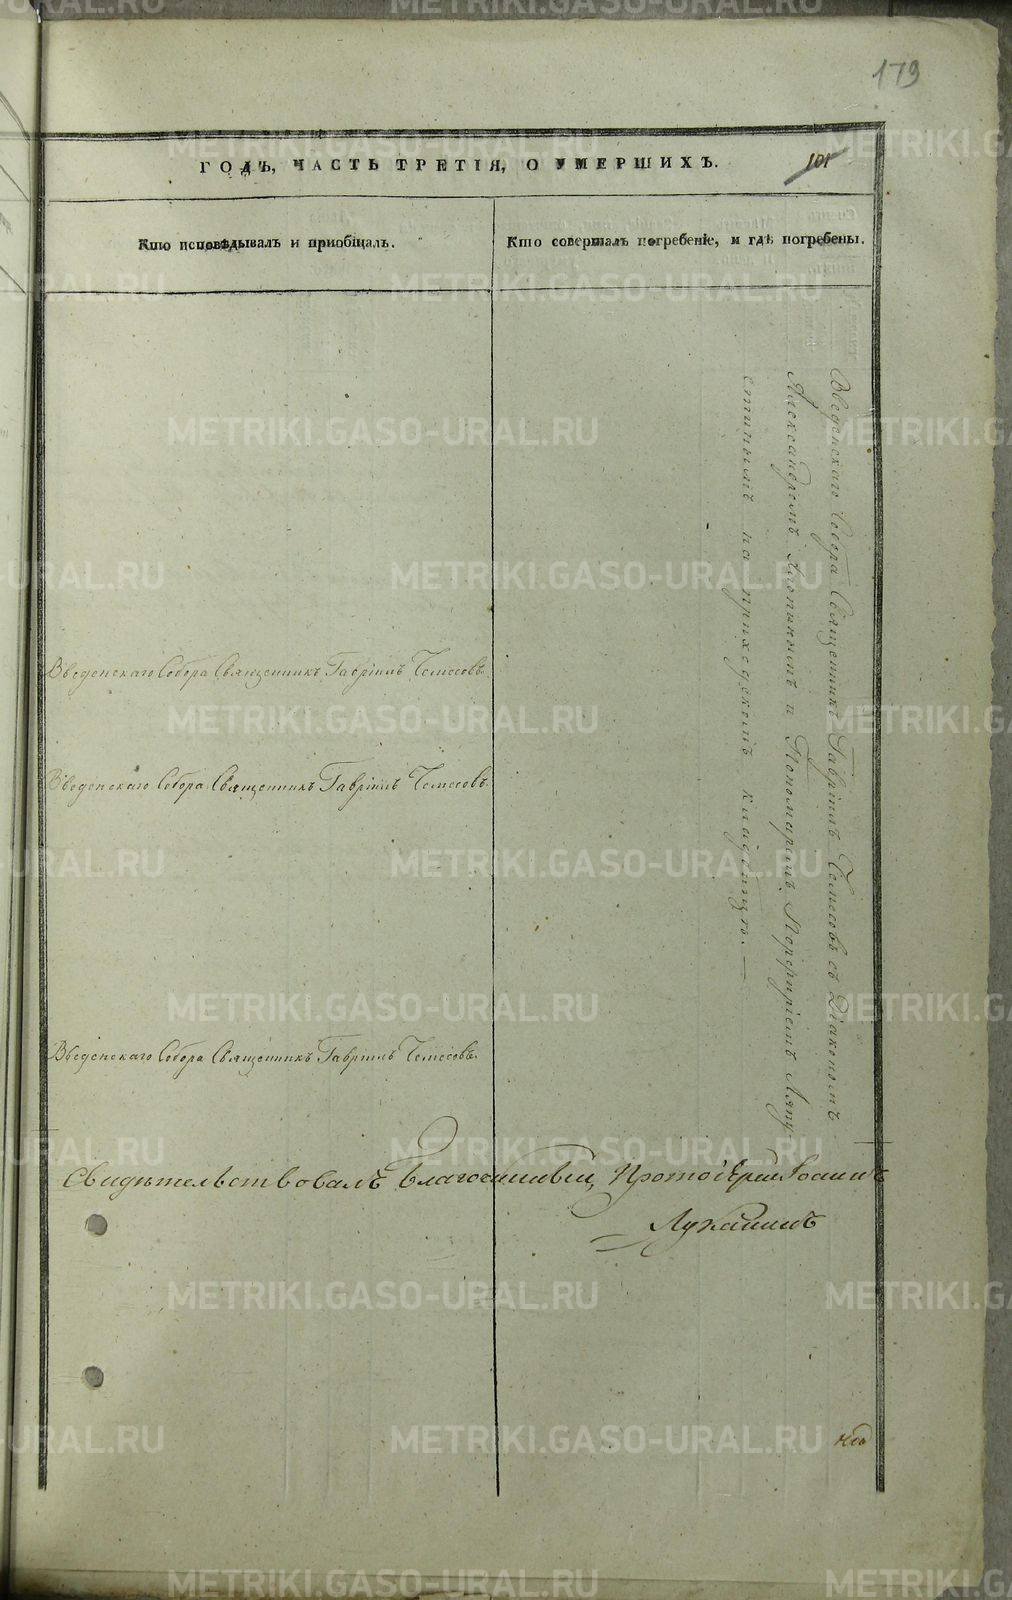 179
ГОДЪ, ЧАСТЬ ТРЕТІЯ, О УМЕРШИХЪ.
101
Кто исповѣдывалъ и пріобщалъ.
Кто совершалъ погребеніе, и гдѣ погребены.
Введенскаго Собора Священникъ Гавріилъ Чемесовъ.
Введенскаго Собора Священникъ Гавріилъ Чемесовъ.
Введенскаго Собора Священникъ Гавріилъ Чемесовъ.
Введенскаго Собора Священникъ Гавріилъ Чемесовъ съ Діакономъ
Александромъ и Пономаремъ Порфиріемъ Ляпу
стинымъ на приходскомъ кладбищѣ. —
Свидѣтельствовалъ Благочинный, Протоіерей Іоаннъ
Луканинъ
METRIKI.GASO-URAL.RU